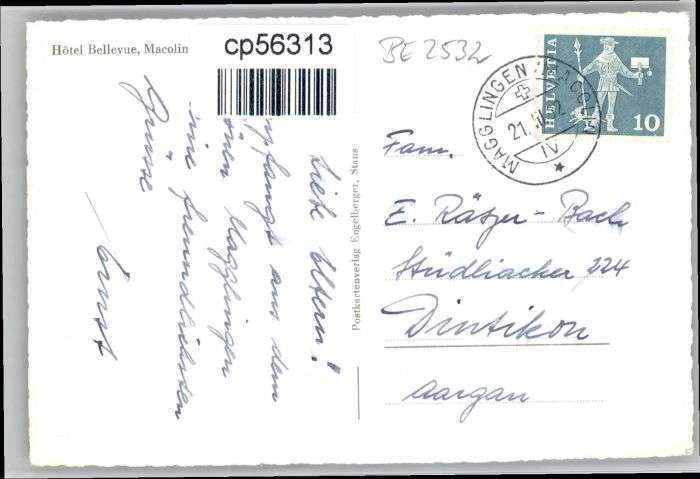 Hôtel Bellevue, Macolin
cp56313
BE 2532
HELVETIA
10
MAGGLINGEN
21.
IV
Liebe Eltern!
aus dem
Magglingen
freundlichsten
Grüsse
Ernst
Postkartenverlag Engelberger, Stans
Fam.
E. Rätzer-Bach
Stüdliacker 224
Dintikon
Aargau